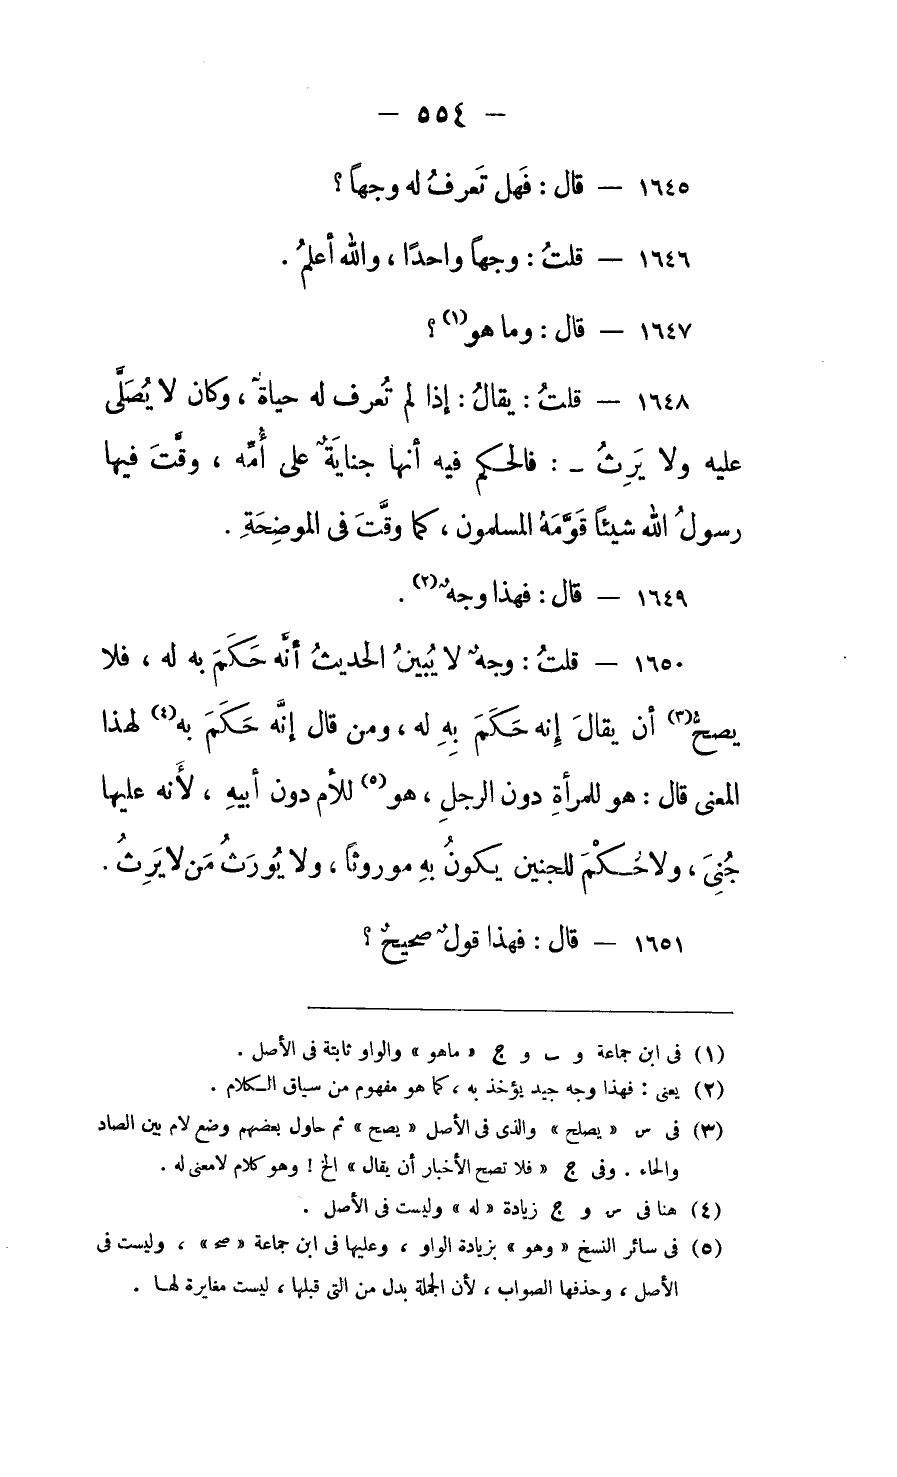 — ٥٥٤ —
١٦٤٥ — قال : فَهل تَعرفُ له وجهاً ؟
١٦٤٦ — قلتُ : وجهاً واحدًا ، والله أعلمُ .
١٦٤٧ — قال : وما هو(١) ؟
١٦٤٨ — قلتُ : يقالُ : إذا لم تُعرف له حياةٌ ، وكان لا يُصَلَّى
عليه ولا يَرِثُ ــ : فالحكم فيه أنها جنايَةٌ على أُمِّه ، وقَّتَ فيها
رسولُ الله شيئاً قَوَّمَهُ المسلمون ، كما وقَّتَ فى الموضِحَةِ .
١٦٤٩ — قال : فهذا وجهٌ(٢) .
١٦٥٠ — قلتُ : وجهٌ لا يُبينُ الحديثُ أنَّه حَكَمَ به له ، فلا
يصحُّ(٣) أن يقالَ إنه حَكَمَ بِهِ له ، ومن قال إنَّه حَكَمَ به(٤) لهذا
المعنى قال : هو للمرأةِ دون الرجلِ ، هو(٥) للأم دون أبيهِ ، لأنه عليها
جُنِىَ ، ولا حُكْمَ للجنين يكونُ بهِ موروثاً ، ولا يُورَثُ مَن لا يَرِثُ .
١٦٥١ — قال : فهذا قولٌ صحيحٌ ؟
(١) فى ابن جماعة و ب و ج « ماهو » والواو ثابتة فى الأصل .
(٢) يعنى : فهذا وجه جيد يؤخذ به ، كما هو مفهوم من سياق الكلام .
(٣) فى س « يصلح » والذى فى الأصل « يصح » ثم حاول بعضهم وضع لام بين الصاد
والحاء . وفى ج « فلا تصح الأخبار أن يقال » الخ ! وهو كلام لامعنى له .
(٤) هنا فى س و ج زيادة « له » وليست فى الأصل .
(٥) فى سائر النسخ « وهو » بزيادة الواو ، وعليها فى ابن جماعة « صح » ، وليست فى
الأصل ، وحذفها الصواب ، لأن الجملة بدل من التى قبلها ، ليست مغايرة لها .